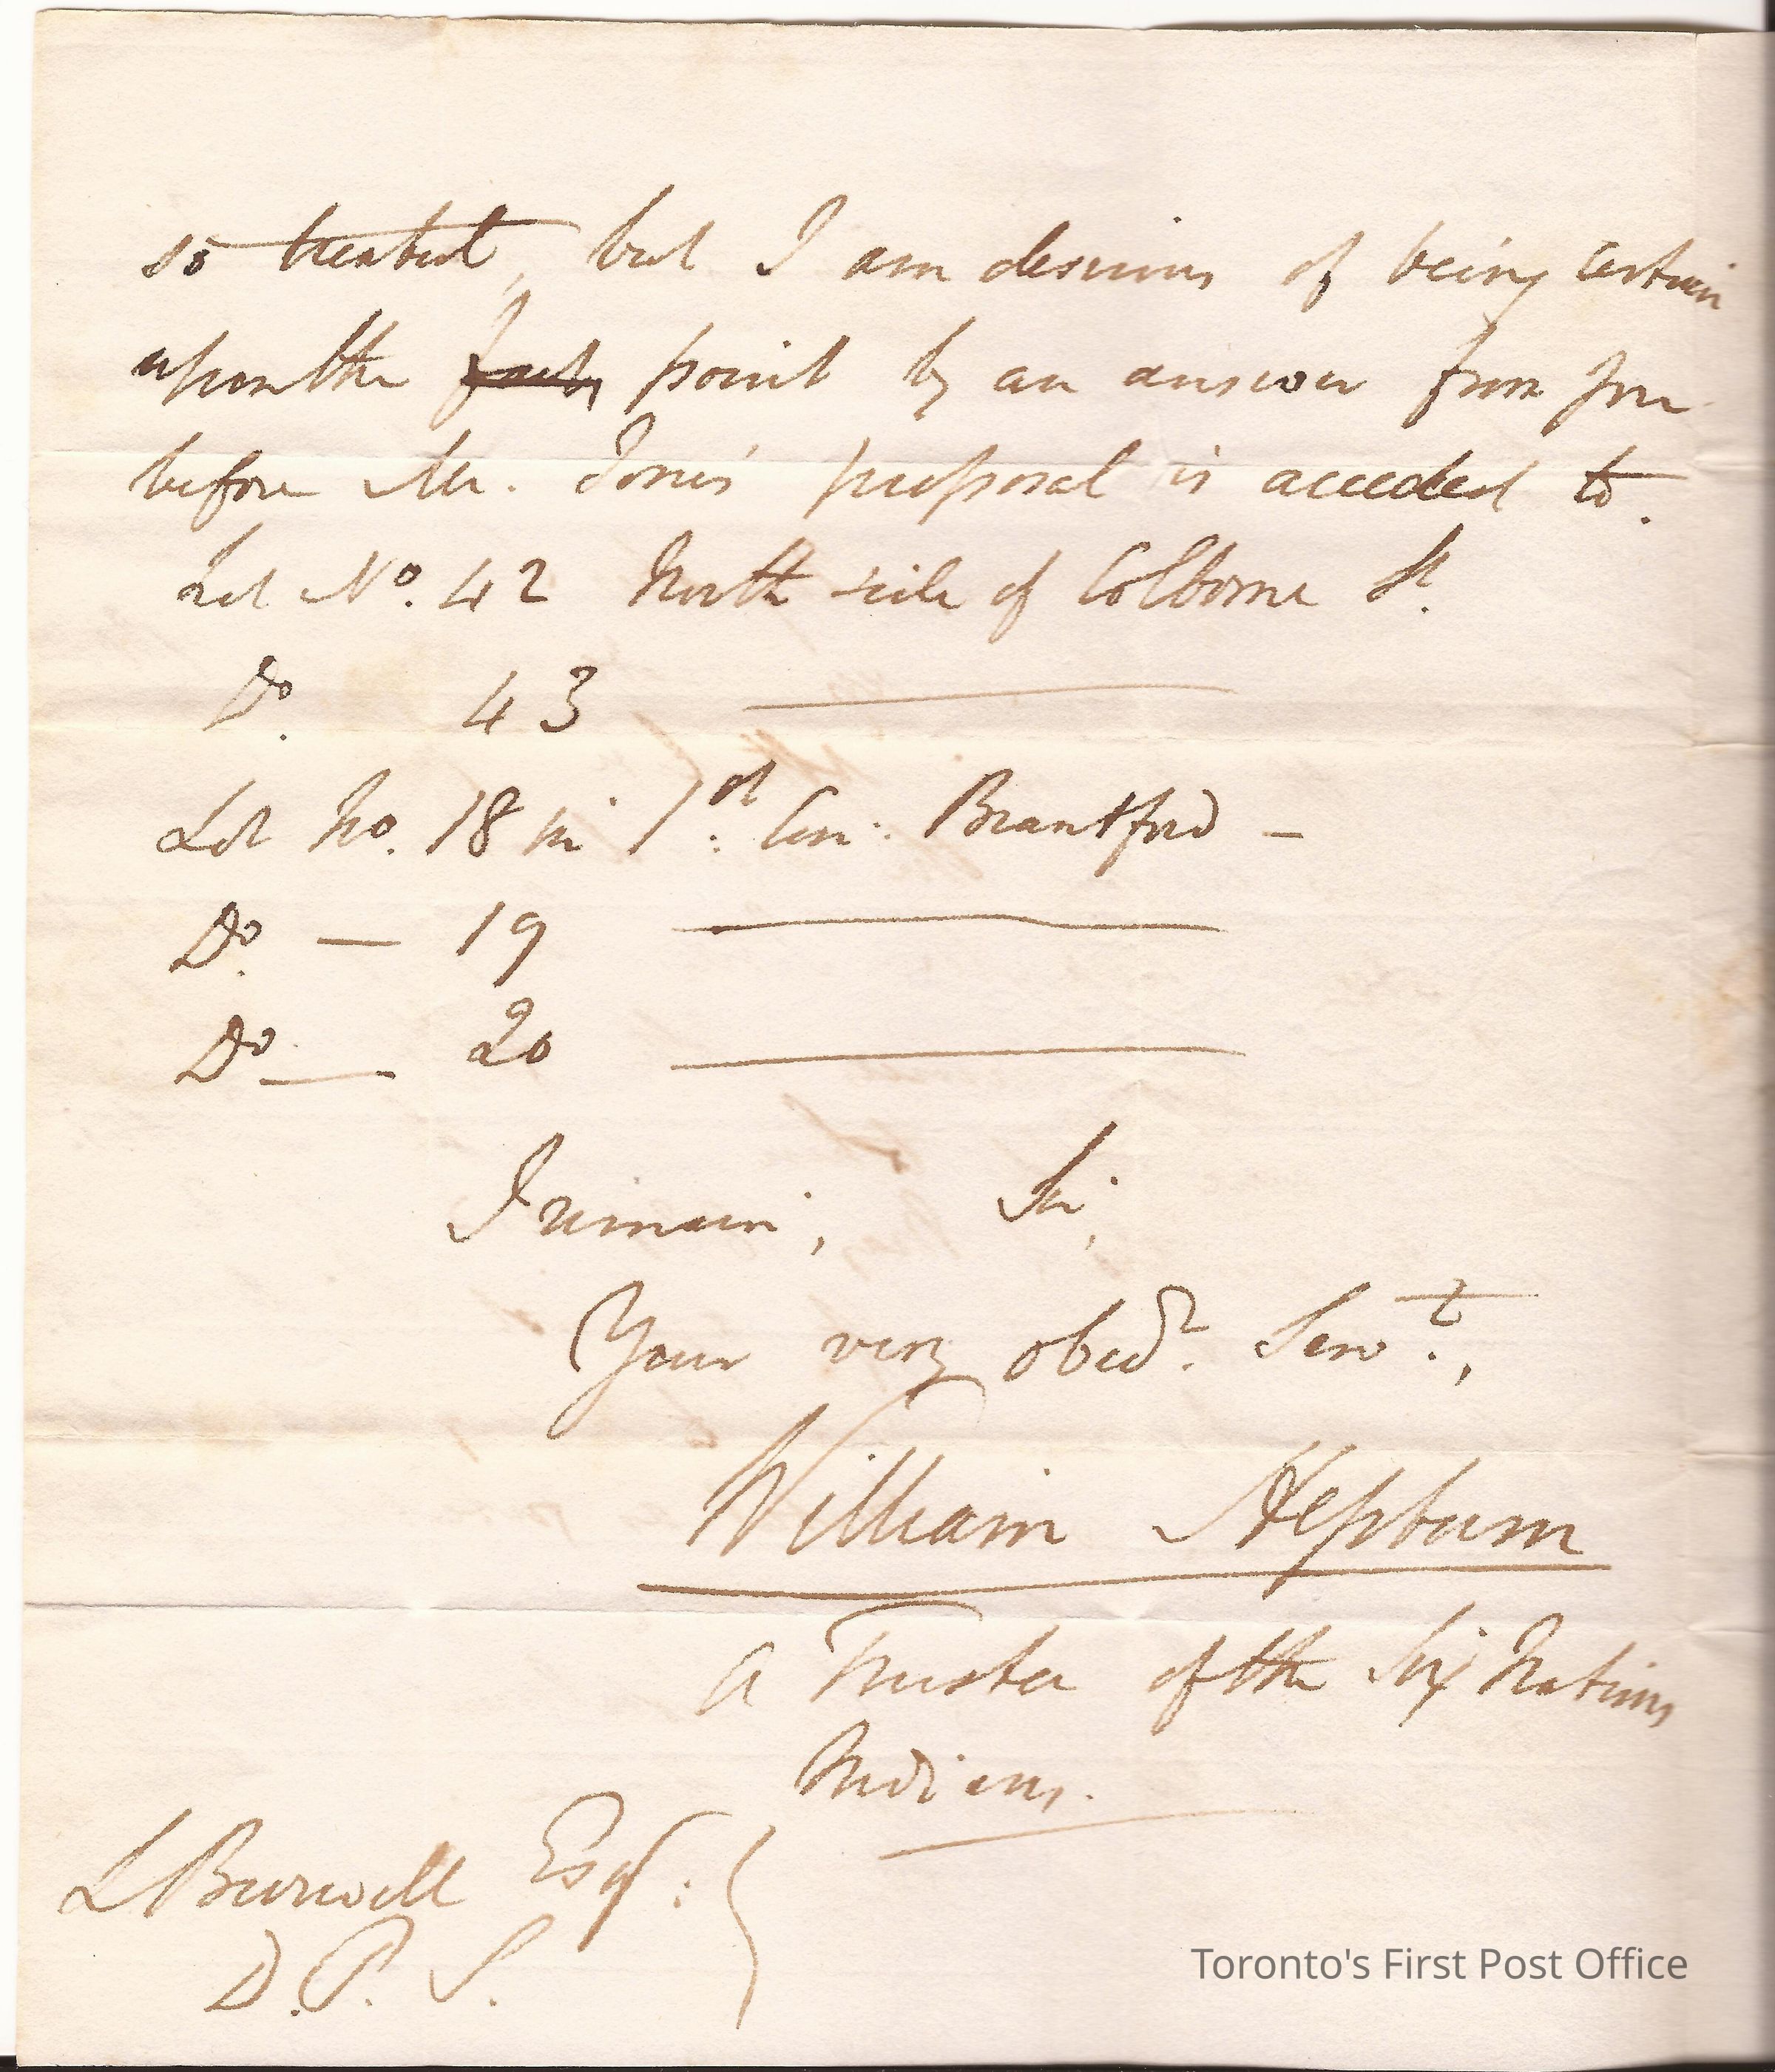 so treated, but I am desirous of being certain
upon the point by an answer from you
before Mr. Jones' proposal is acceded to.
Lot No. 42 North side of Colborne St.
Do. 43 ———
Lot No. 18 in 1st. Con: Brantford —
Do. — 19 ———
Do — 20 ———
I remain, Sir,
Your very obedt. Servt.,
William Hepburn
A Trustee of the Six Nations
Indians.
L Burwell Esqr:
D. P. S.
Toronto's First Post Office